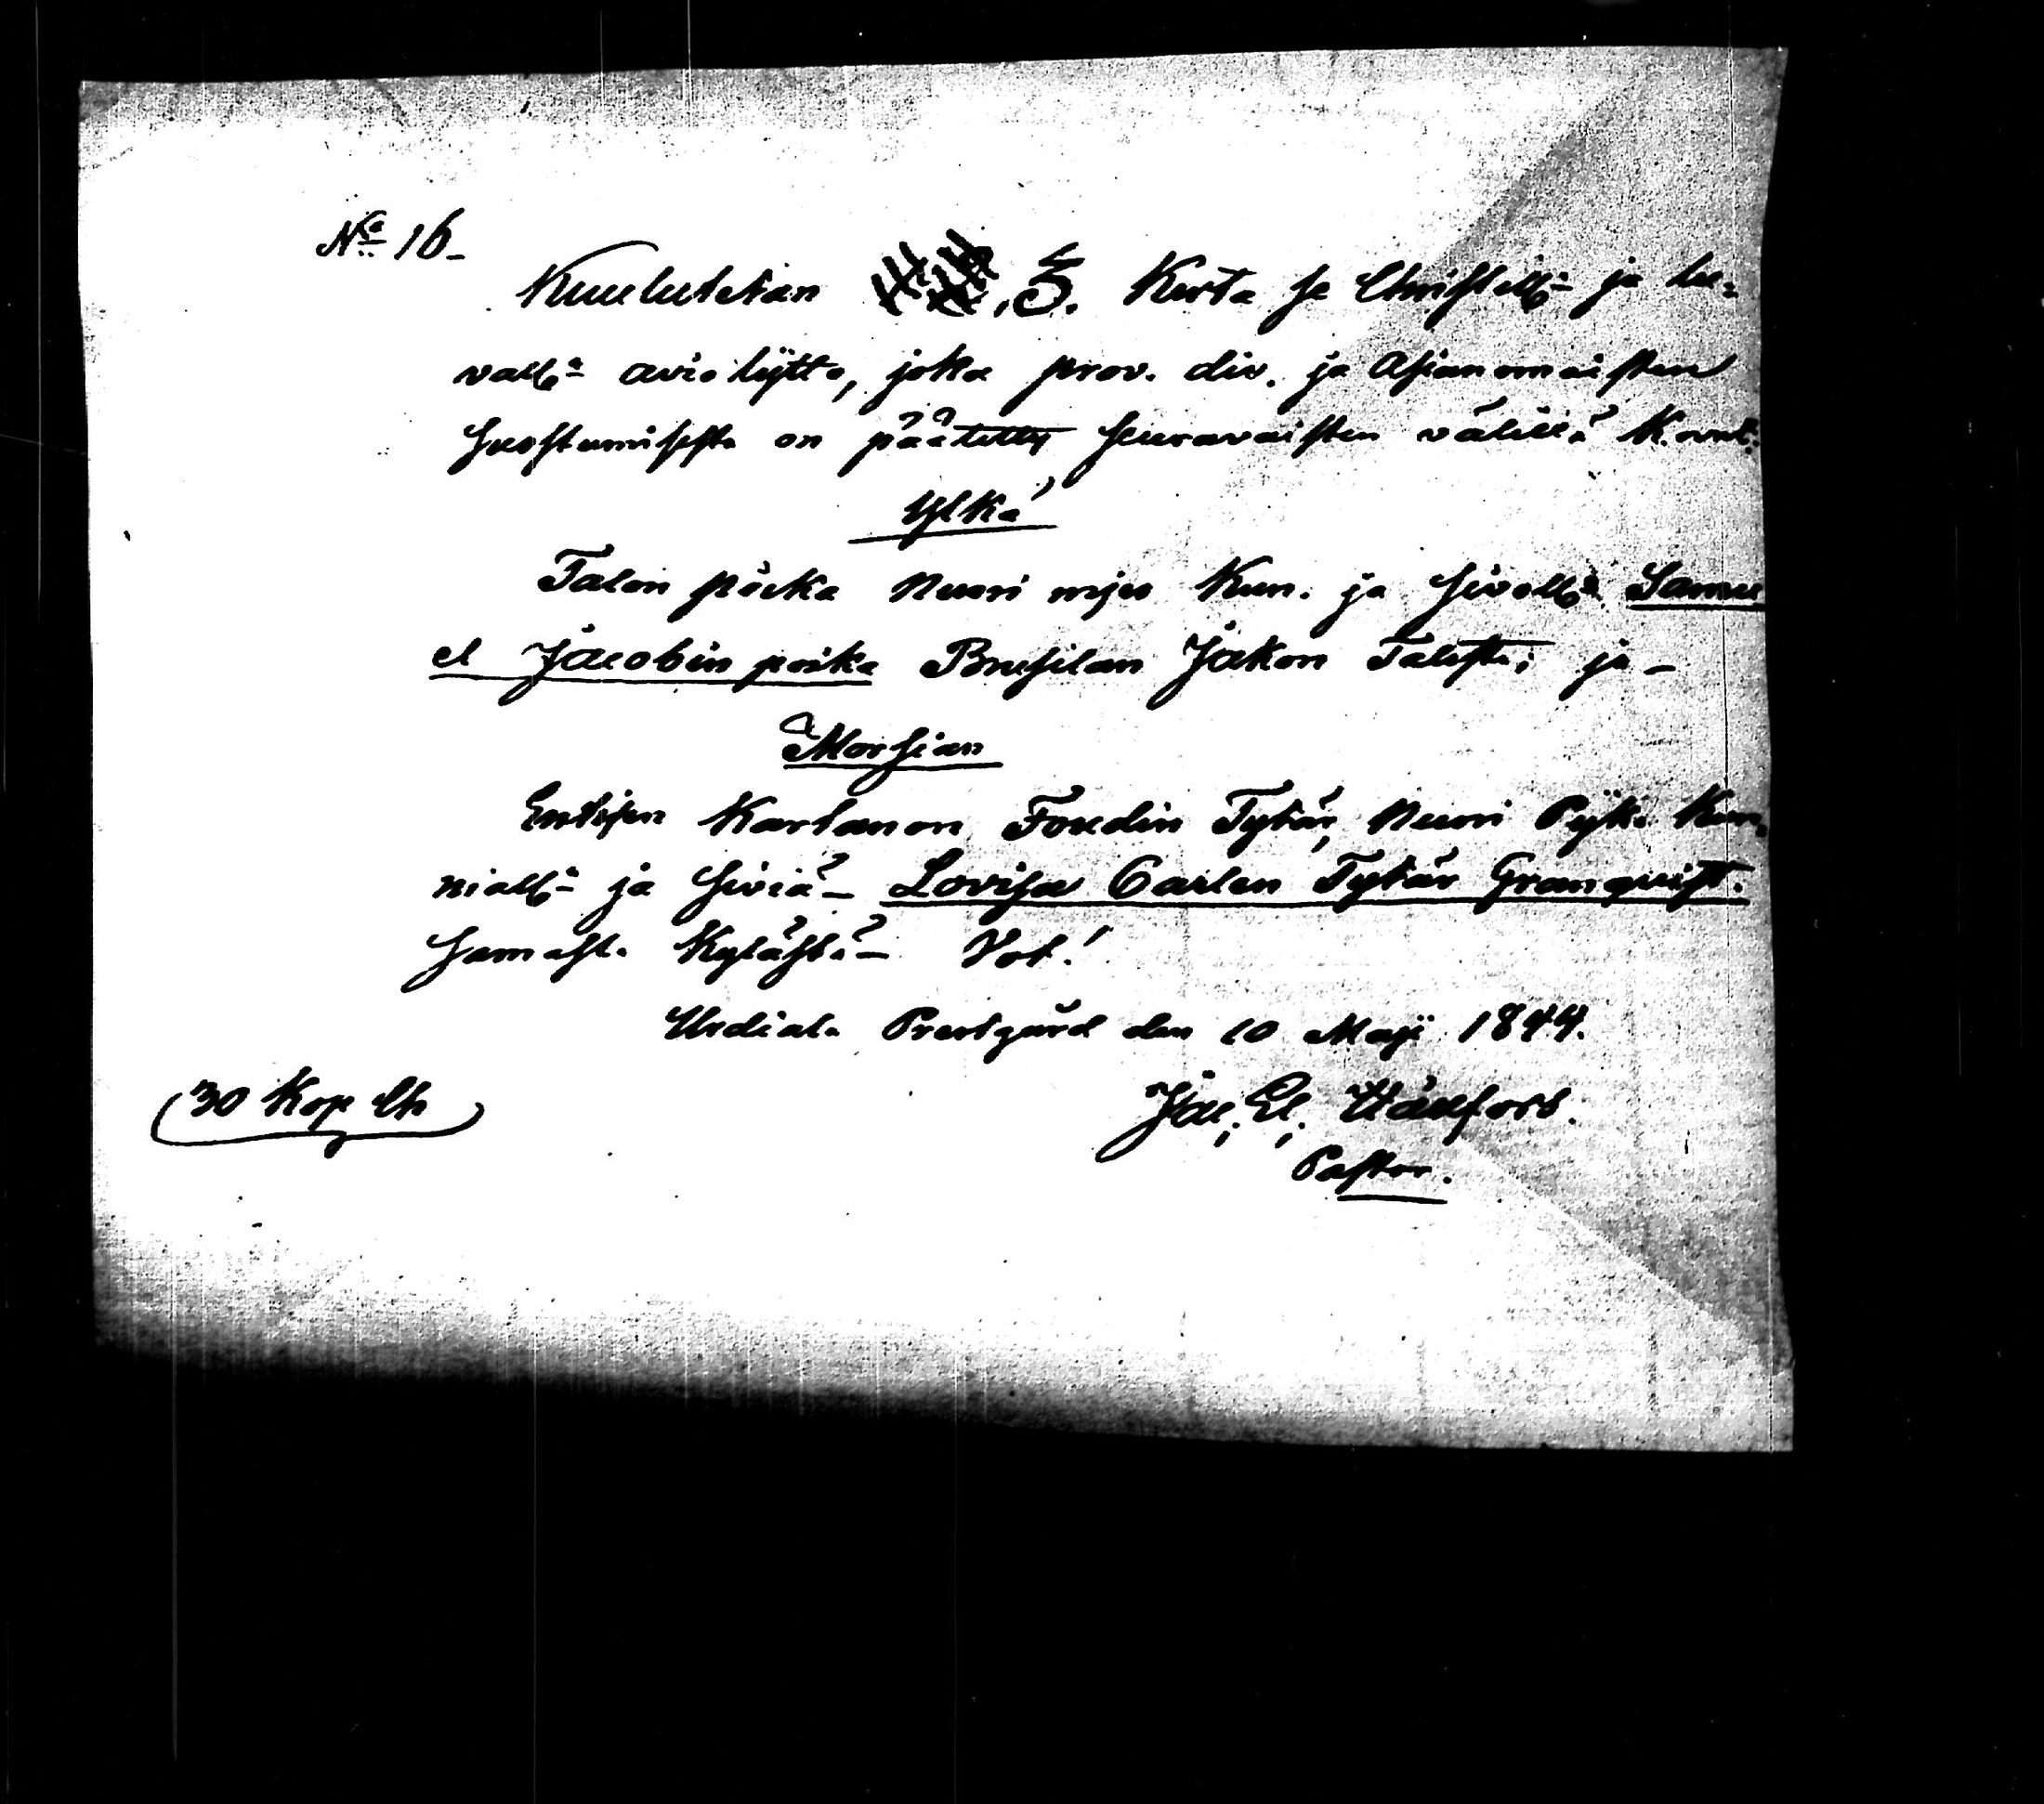 No 16.
Kuulutetan 3. Kerta se Christill:n ja lu-
vall:n avioliitto, joka prov. div. ja Asianomaisten
suostumisesta on päätetty seuravaisten välillä
Ylkä
Talon poika Nuori mies Kun. ja sivell:n Samu
el Jacobin poika Brusilan Jakon Talosta; ja –
Morsian
Entisen Kartanon Foudin Tytär, Nuori Piika Kun-
niall:n ja siviä – Lovisa Carlen Tytär Granqvist.
samasta Kylästä – Vot!
Urdiala Prestgård den 10 Maji 1844.
30 Kop
Jac. El.
Pastor.